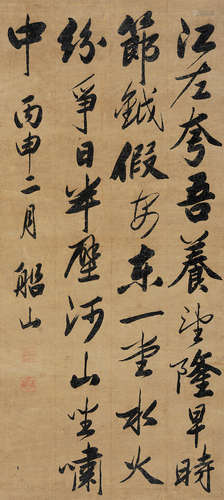 江左夷吾養望隆早時
節鉞假安東一堂水火
紛爭日半壁河山坐嘯
中 丙申二月 船山